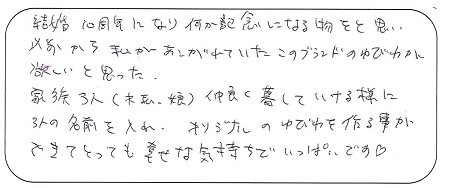 結婚10周年になり何か記念になる物をと思い
以前から私があこがれていたこのブランドのゆびわが
欲しいと思った.
家族3人(夫、私、娘)仲良く暮していける様に
3人の名前を入れ、オリジナルのゆびわを作る事が
できてとっても幸せな気持ちでいっぱいです♡